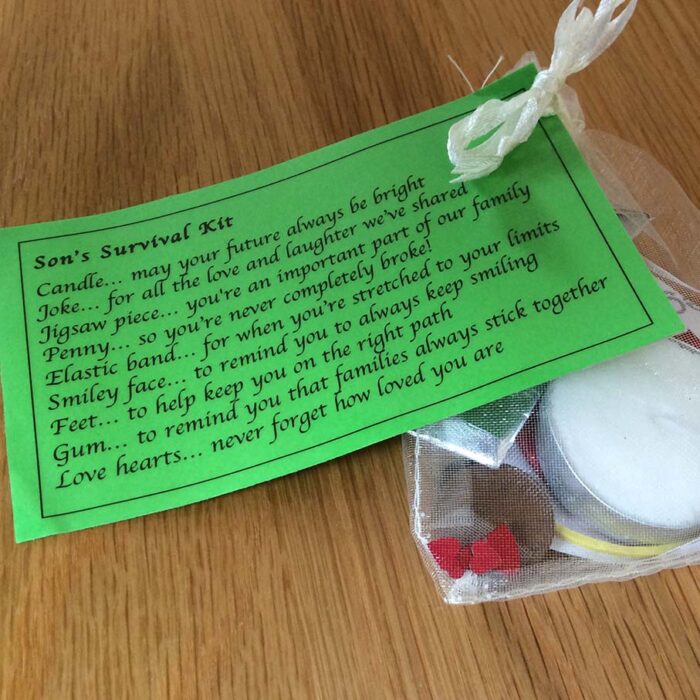 Son's Survival Kit
Candle... may your future always be bright
Joke... for all the love and laughter we've shared
Jigsaw piece... you're an important part of our family
Penny... so you're never completely broke!
Elastic band... for when you're stretched to your limits
Smiley face... to remind you to always keep smiling
Feet... to help keep you on the right path
Gum... to remind you that families always stick together
Love hearts... never forget how loved you are